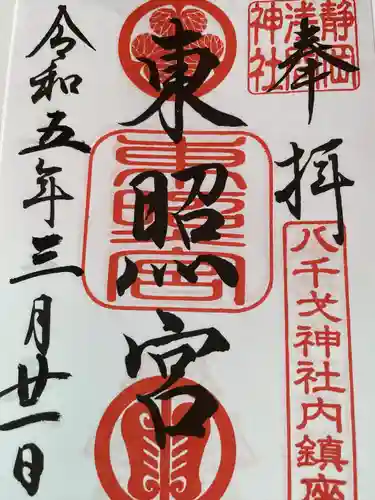 奉拝
静岡
浅間
神社
八千戈神社内鎮座
東照宮
令和五年三月廿一日